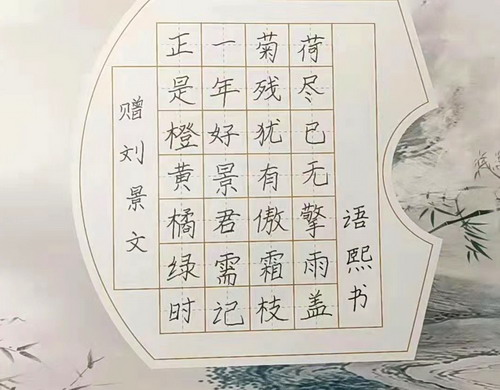 语熙书
荷尽已无擎雨盖
菊残犹有傲霜枝
一年好景君需记
正是橙黄橘绿时
赠刘景文